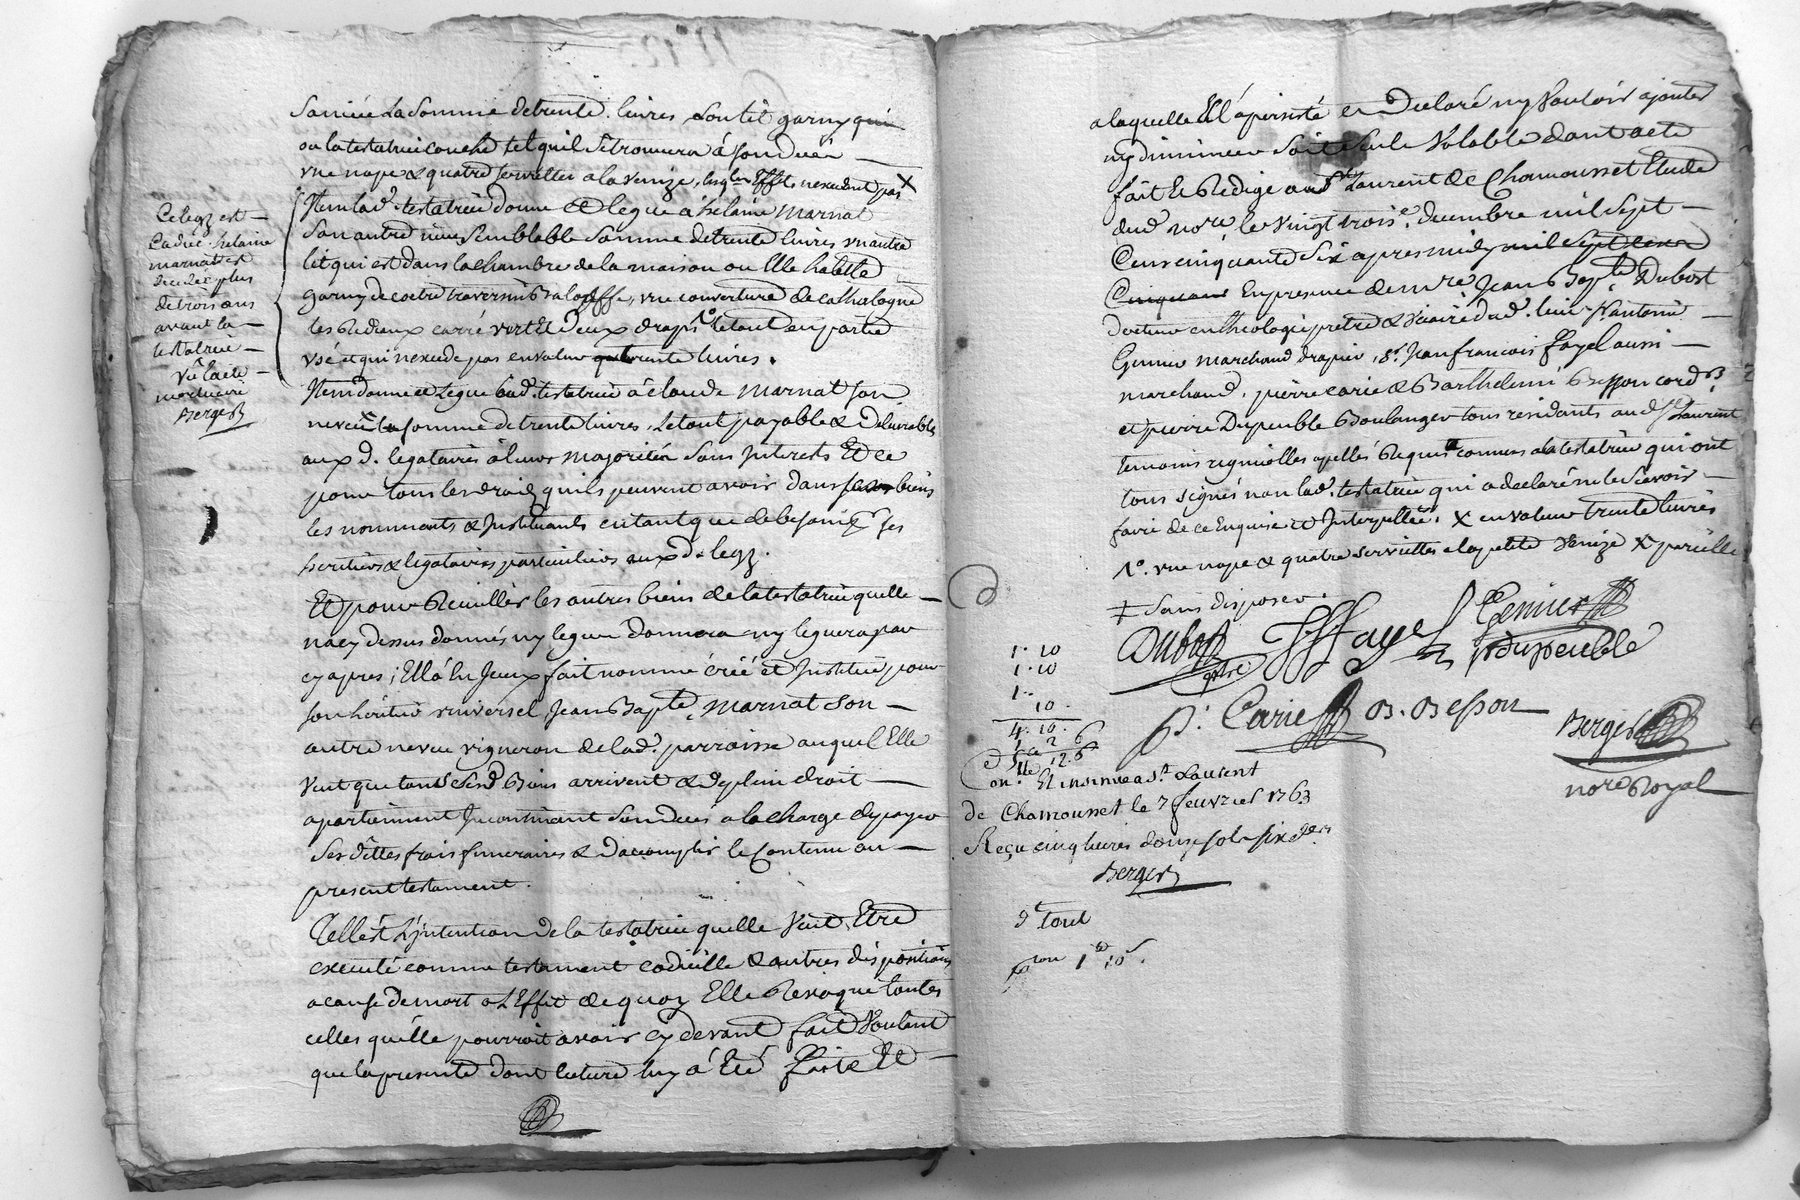 sa niéce La Somme de trente livres Son lit garny
ou la testatrice couche tel quil Se trouvera á Son decés —
vne nape & quatre Serviettes a la Venize, lesqls Effets nexcedent pas X
Item lad. testatrice donne & legue a helaine Marnat
Son autre niéce Semblable Somme de trente livres vn autre
lit qui est dans la Chambre de la maison ou Elle habitte
garny de coetre traversin Baloffe, vne couverture de cathalogne
les Rideaux carré vert Et deux draps 1o le tout en partie
vsé et qui nexcede pas en valeur trente livres.
Item donne et Legue lad. testatrice á claude Marnat Son
neveu la Somme de trente livres, Le tout payable & delivrable
aux d. legataires á leurs majorités Sans Interests Et ce
pour tous les droits quils peuvent avoir dans biens
les nommants & Instituants en tant que de besoin Ses
heritiers & legataires particuliers aux d. legz.
Et pour Reveiller les autres biens de la testatrice quelle —
na cy dessus donnés ny legué donnera ny leguera par
cy apres; Ell'á En Iceux fait nommé créé et Institué pour
Son héritier vniversel Jean Bapte. Marnat Son —
autre neveu vigneron de lad. parroisse auquel Elle
veut que tous Sesd. Biens arrivent & de plein droit —
apartiennent Incontinent Son deces a la charge de payer
Ses dittes frais funeraires & daccomplir le Contenu au —
present testament.
Telle Est L'jntention de la testatrice quelle Veut Etre
executé comme testament codicille & autres dispositions
a cause de mort a L'Effet de quoy Elle Revoque toutes
celles quélle pourroit avoir Cy devant fait Voulant
que la presente dont lecture luy á Eté faite Et —
Ce legz est —
Caduc. helaine
marnat est
decedée plus
de trois ans
avant la —
testatrice —
Vû lacte —
mortuaire
Berger
a laquelle Ell'á persisté et Declaré ny Vouloir ajouter
ny diminuer Soit Seule Valable dont acte
fait Et Redigé aud. St Laurent de Chamousset Etude
dud. nore. le vingt trois e. decembre mil Sept —
Cens cinquante Six apres midy mil Sept cens
Cinquante En presence de mre Jean Bapte. Dubost
docteur en theologie pretre & vicaire dud. lieu Sr antoine —
Genier marchand drapier, Sr. Jean francois fayel aussi —
marchand, pierre carie & Barthelemi Besson cordrs
et pierre Dupeuble Boulanger tous residants aud. St Laurent
temoins apellés Requis connus a la testatrice qui ont
tous Signés non lad. testatrice qui a declaré ne le Scavoir —
faire de ce Enquise et Interpellée. X en valeur trente livres
1o. vne nape & quatre Serviettes a la petite Venize X pareille
‡ Sans disposer.
Dubost ptre Fayel Genier
p dupeuble
P. Carie B. Besson
Berger
nore Royal
1. 10
1. 10
1.
10.
4. 10.
1 2 6
5 12. 6
Et insinué a St. Laurent
de Chamousset le 7 fevrier 1763
Reçu cinq livres douze sols six drs
Berger
dt tout
1 10 s.